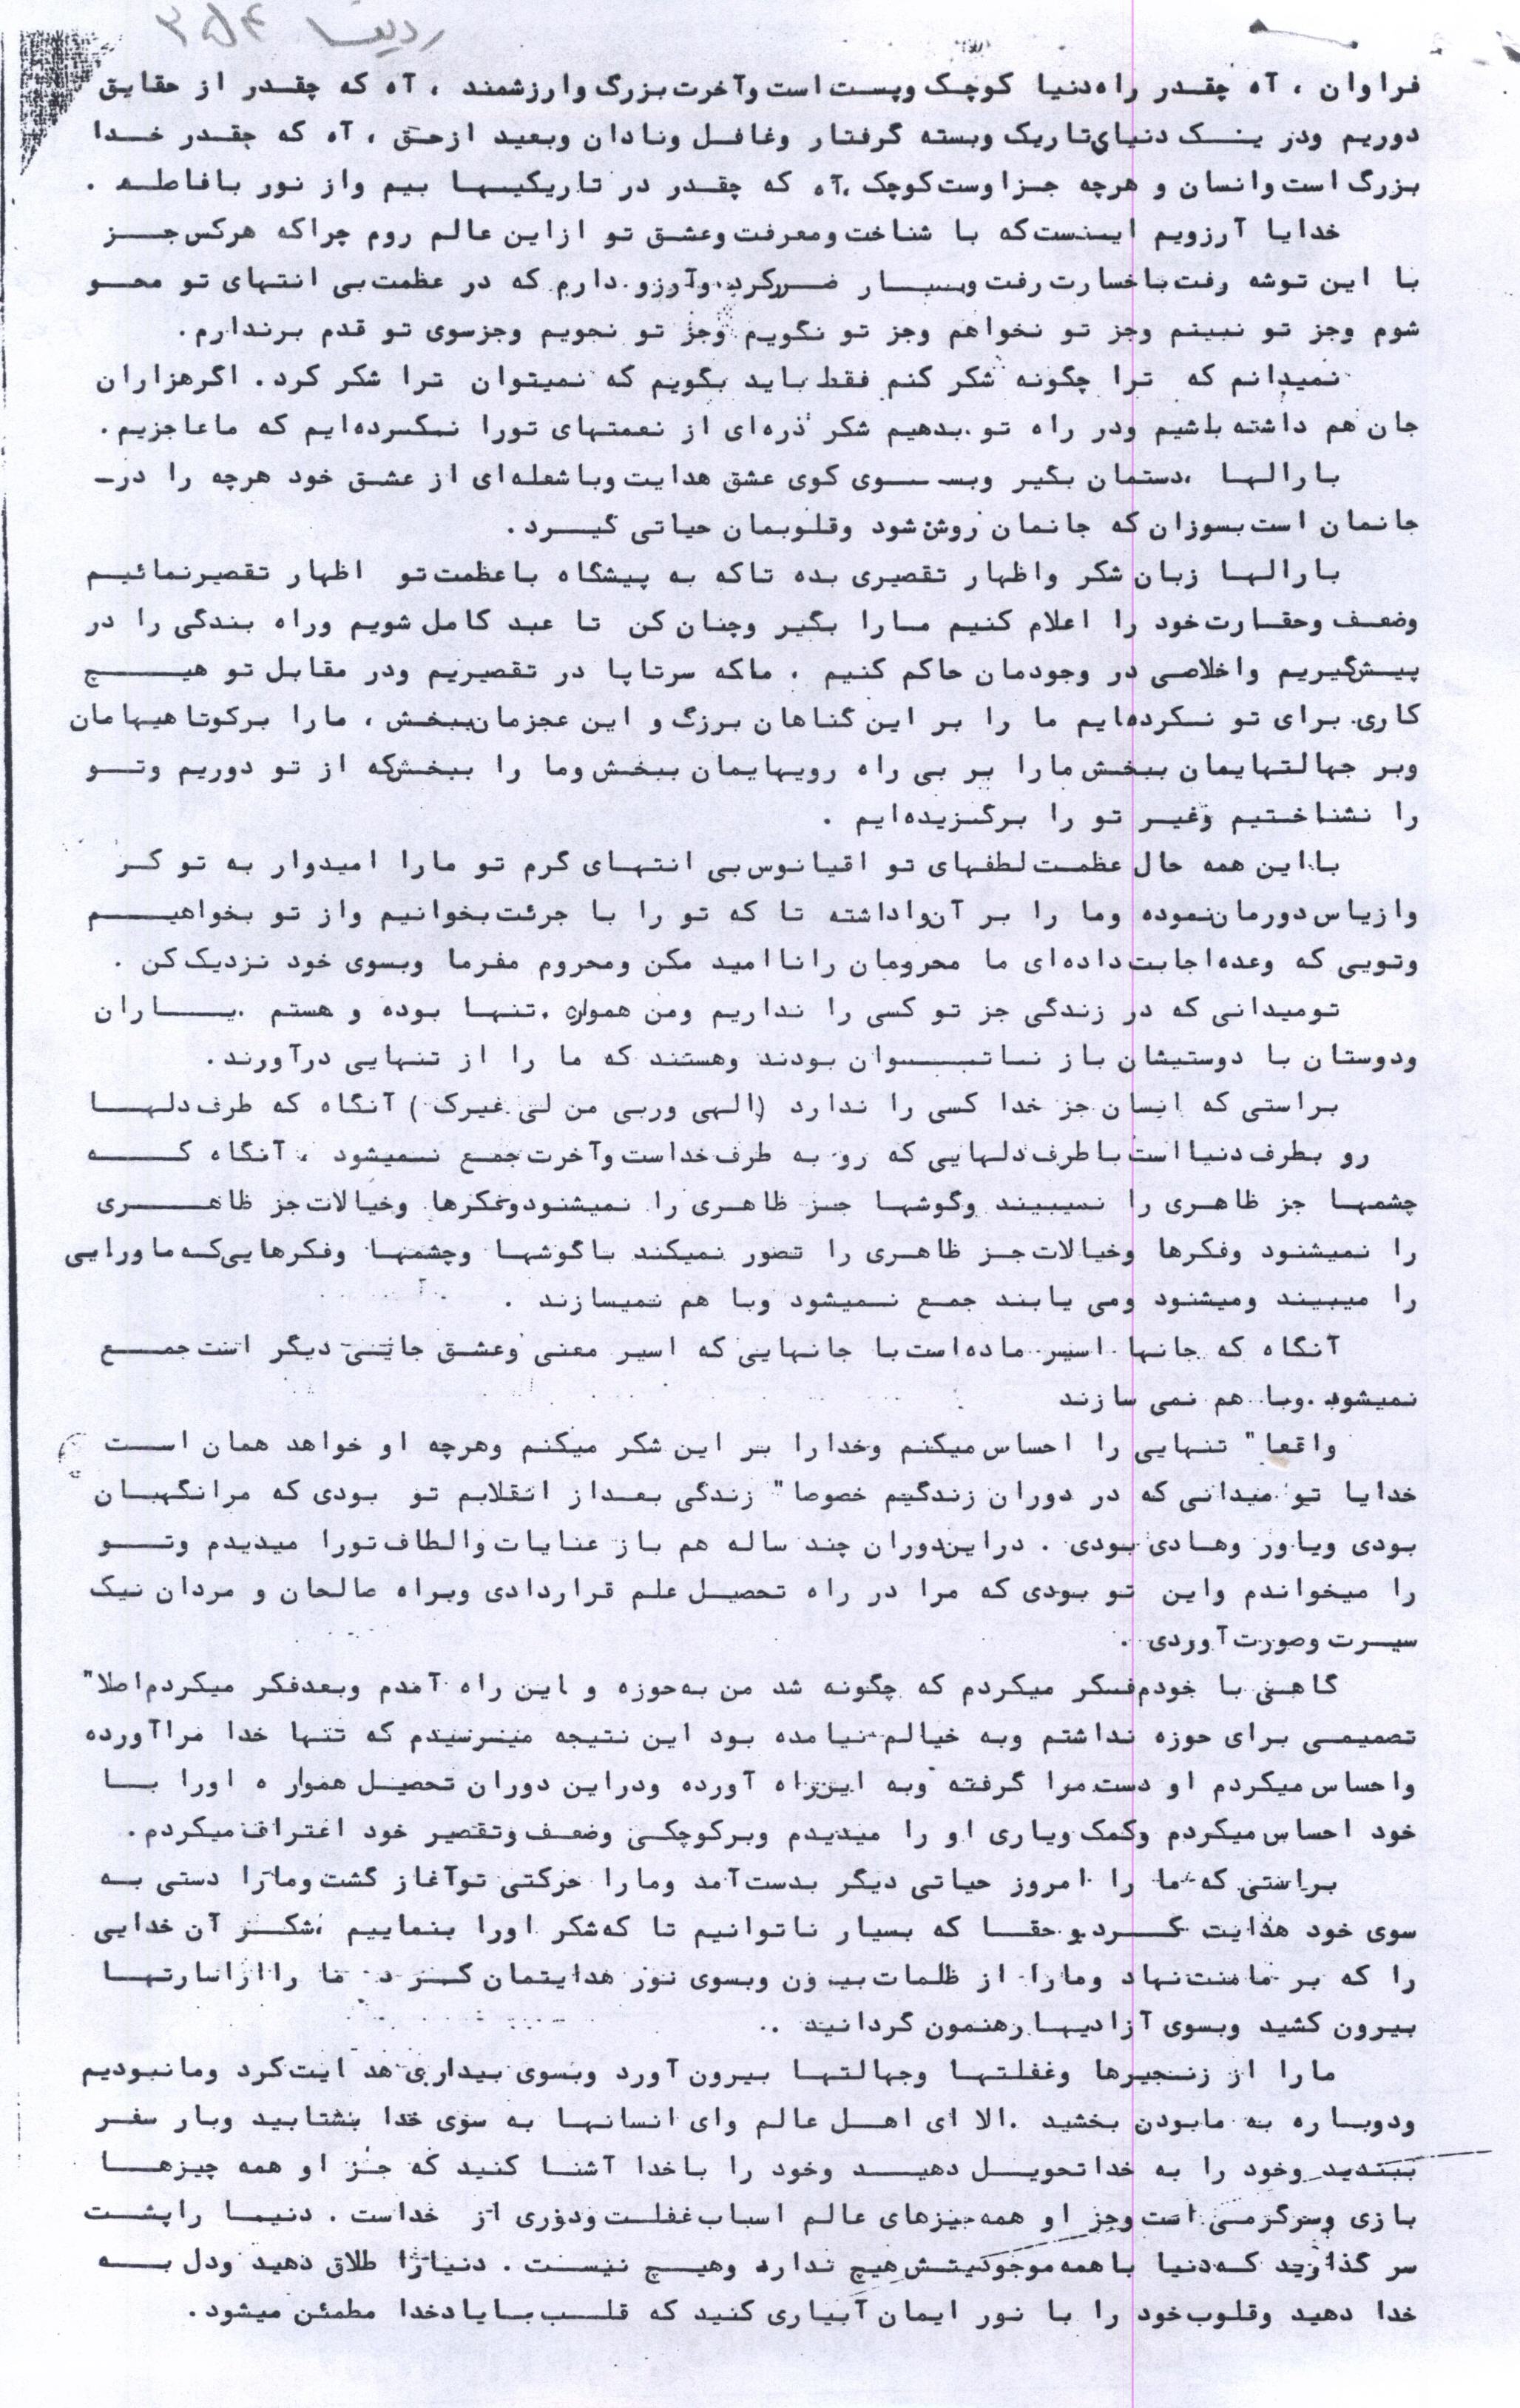 ردیف ۳۵۴
فراوان ، آه چقدر راه دنیا کوچک وپست است وآخرت بزرگ وارزشمند ، آه که چقدر از حقایق
دوریم ودر یک دنیای تاریک وبسته گرفتار وغافل ونادان وبعید ازحق ، آه که چقدر خدا
بزرگ است وانسان و هرچه جزاوست کوچک ،آه که چقدر در تاریکیها بیم واز نور بافاصله .
خدایا آرزویم اینست که با شناخت ومعرفت وعشق تو ازاین عالم روم چراکه هرکس جز
با این توشه رفت باخسارت رفت وبسیار ضررکرد، وآرزو دارم که در عظمت بی انتهای تو محو
شوم وجز تو نبینم وجز تو نخواهم وجز تو نگویم وجز تو نجویم وجزسوی تو قدم برندارم .
نمیدانم که ترا چگونه شکر کنم فقط باید بگویم که نمیتوان ترا شکر کرد . اگرهزاران
جان هم داشته باشیم ودر راه تو بدهیم شکر ذره‌ای از نعمتهای تورا نکرده‌ایم که ماعاجزیم .
بارالها ،دستمان بگیر وبسوی کوی عشق هدایت وباشعله‌ای از عشق خود هرچه را در-
جانمان است بسوزان که جانمان روشن شود وقلوبمان حیاتی گیرد .
بارالها زبان شکر واظهار تقصیری بده تاکه به پیشگاه باعظمت تو اظهار تقصیرنمائیم
وضعف وحقارت خود را اعلام کنیم مارا بگیر وچنان کن تا عبد کامل شویم وراه بندگی را در
پیش گیریم واخلاصی در وجودمان حاکم کنیم . ماکه سرتاپا در تقصیریم ودر مقابل تو هیچ
کاری برای تو نکرده‌ایم ما را بر این گناهان برزگ و این عجزمان ببخش ، مارا برکوتاهیهامان
وبر جهالتهایمان ببخش مارا بر بی راه رویهایمان ببخش وما را ببخش که از تو دوریم وتو
را نشناختیم وغیر تو را برگزیده‌ایم .
بااین همه حال عظمت لطفهای تو اقیانوس بی انتهای گرم تو مارا امیدوار به تو کر
وازیاس دورمان نموده وما را بر آن واداشته تا که تو را با جرئت بخوانیم واز تو بخواهیم
وتویی که وعده اجابت داده‌ای ما محرومان راناامید مکن ومحروم مفرما وبسوی خود نزدیک کن .
تومیدانی که در زندگی جز تو کسی را نداریم ومن همواره .تنها بوده و هستم .یاران
ودوستان با دوستیشان باز ناتوان بودند وهستند که ما را از تنهایی درآورند .
براستی که انسان جز خدا کسی را ندارد (الهی وربی من لی غیرک ) آنگاه که طرف دلها
رو بطرف دنیااست باطرف دلهایی که رو به طرف خداست وآخرت جمع نمیشود ، آنگاه که
چشمها جز ظاهری را نمیبیند وگوشها جز ظاهری را نمیشنودوفکرها وخیالات جز ظاهری
را نمیشنود وفکرها وخیالات جز ظاهری را تصور نمیکند باگوشها وچشمها وفکرهایی که ماورایی
را میبیند ومیشنود ومی یابند جمع نمیشود وبا هم نمیسازند .
آنگاه که جانها اسیر ماده است با جانهایی که اسیر معنی وعشق جایی دیگر است جمع
نمیشود .وبا هم نمی سازند
واقعا" تنهایی را احساس میکنم وخدارا بر این شکر میکنم وهرچه او خواهد همان است
خدایا تو میدانی که در دوران زندگیم خصوصا" زندگی بعداز انقلابم تو بودی که مرانگهبان
بودی ویاور وهادی بودی . دراین دوران چند ساله هم باز عنایات والطاف تورا میدیدم وتو
را میخواندم واین تو بودی که مرا در راه تحصیل علم قراردادی وبراه صالحان و مردان نیک
سیرت وصورت آوردی .
گاهی با خودم فکر میکردم که چگونه شد من به حوزه و این راه آمدم وبعدفکر میکردم اصلا"
تصمیمی برای حوزه نداشتم وبه خیالم نیامده بود این نتیجه میرسیدم که تنها خدا مراآورده
واحساس میکردم او دست مرا گرفته وبه این راه آورده ودراین دوران تحصیل هموار ه اورا با
خود احساس میکردم وکمک ویاری او را میدیدم وبرکوچکی وضعف وتقصیر خود اعتراف میکردم .
براستی که ما را امروز حیاتی دیگر بدست آمد ومارا حرکتی نوآغاز گشت ومارا دستی به
سوی خود هدایت کرد و حقا که بسیار ناتوانیم تا که شکر اورا بنماییم ،شکر آن خدایی
را که بر مامنت نهاد ومارا از ظلمات بیرون وبسوی نور هدایتمان کر د ما راازاسارتها
بیرون کشید وبسوی آزادیها رهنمون گردانید ..
مارا از زنجیرها وغفلتها وجهالتها بیرون آورد وبسوی بیداری هد ایت کرد ومانبودیم
ودوباره به مابودن بخشید .الا ای اهل عالم وای انسانها به سوی خدا بشتابید وبار سفر
ببندید وخود را به خداتحویل دهید وخود را باخدا آشنا کنید که جز او همه چیزها
بازی وسرگرمی است وجز او همه چیزهای عالم اسباب غفلت ودوری از خداست . دنیا راپشت
سر گذارید که دنیا باهمه موجودیتش هیچ ندارد وهیچ نیست . دنیارا طلاق دهید ودل به
خدا دهید وقلوب خود را با نور ایمان آبیاری کنید که قلب بایادخدا مطمئن میشود .